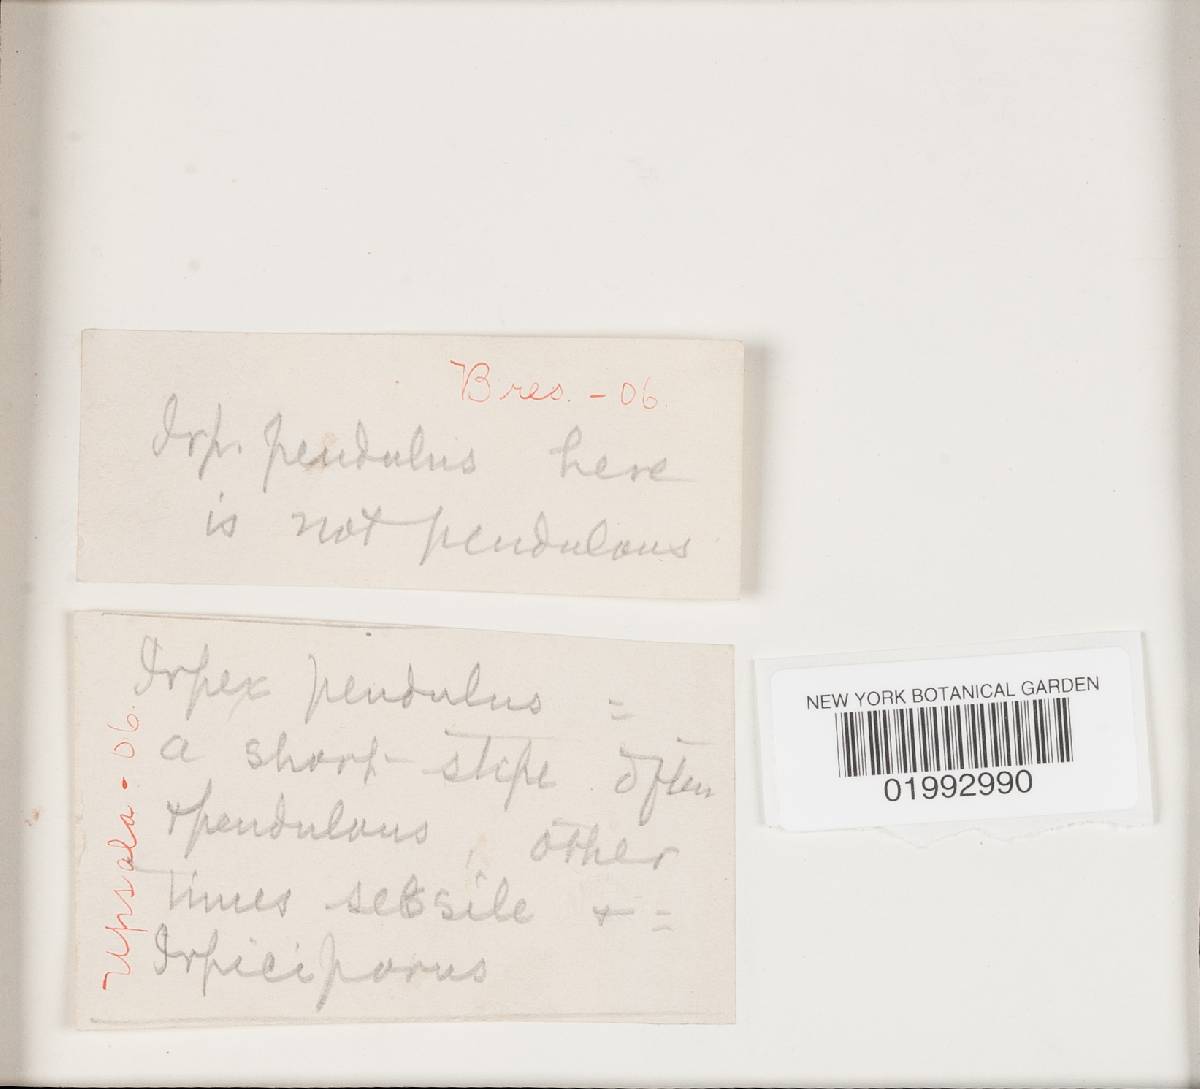 Bres. - 06.
Irp. pendulus here
is not pendulous
Irpex pendulus =
a short stipe often
+ pendulous, other
times sessile + =
Irpiciporus
Upsala - 06.
NEW YORK BOTANICAL GARDEN
01992990